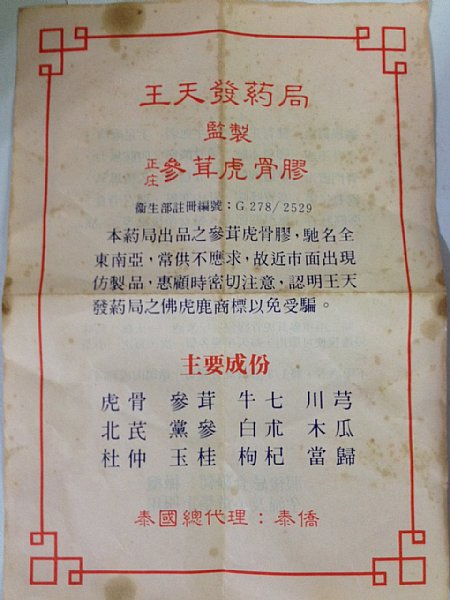 王天發葯局
監製
正庄參茸虎骨膠
衞生部註冊編號：G 278/2529
本葯局出品之參茸虎骨膠，馳名全
東南亞，常供不應求，故近市面出現
仿製品，惠顧時密切注意，認明王天
發葯局之佛虎鹿商標以免受騙。
主要成份
虎骨 參茸 牛七 川芎
北芪 黨參 白朮 木瓜
杜仲 玉桂 枸杞 當歸
泰國總代理：泰僑